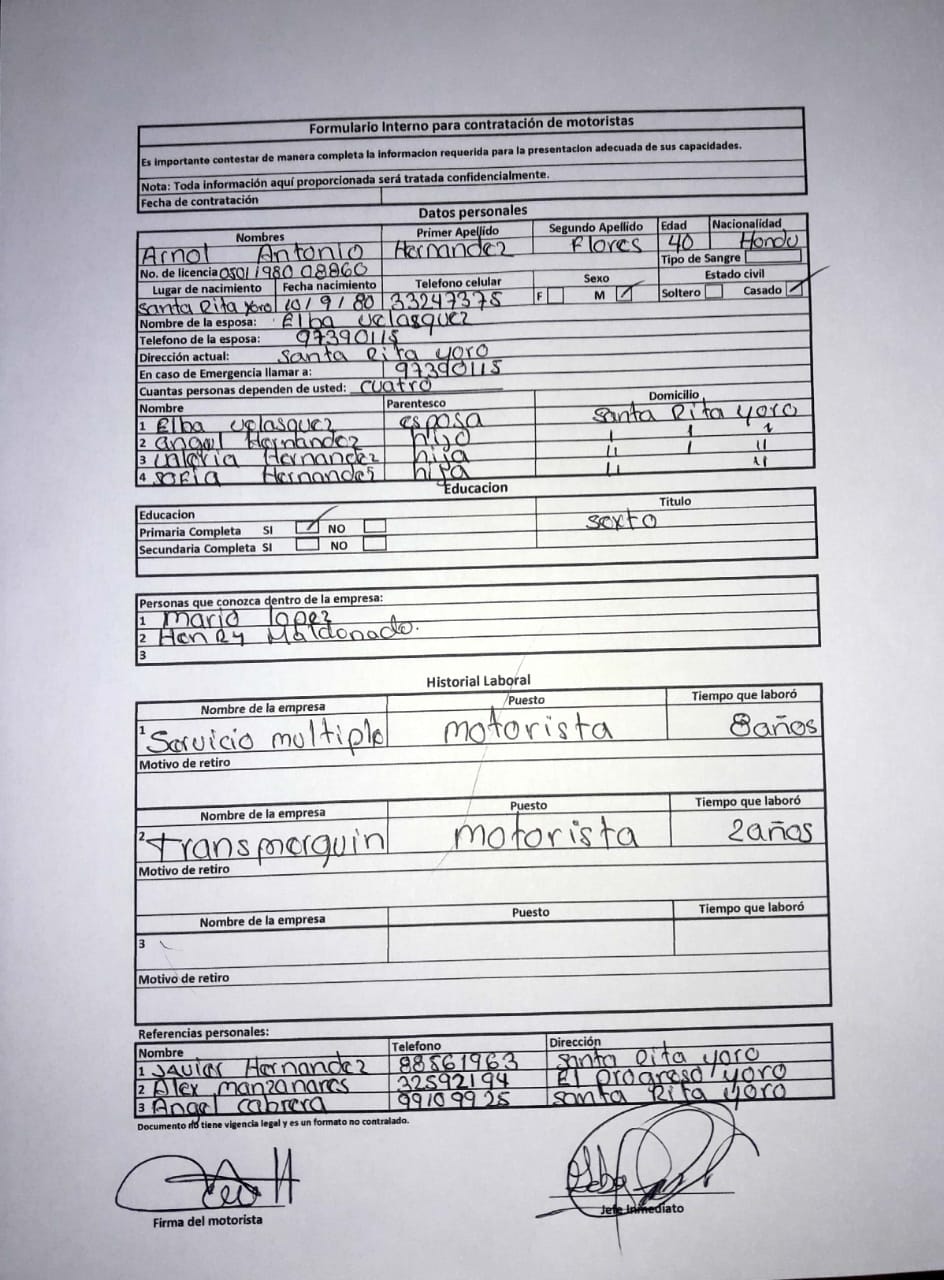 Formulario Interno para contratación de motoristas
Es importante contestar de manera completa la informacion requerida para la presentacion adecuada de sus capacidades.
Nota: Toda información aquí proporcionada será tratada confidencialmente.
Fecha de contratación
Datos personales
Nombres Primer Apellido Segundo Apellido Edad Nacionalidad
Arnol Antonio Hernandez Flores 40 Hondu
No. de licencia 0501 1980 08860 Tipo de Sangre
Lugar de nacimiento Fecha nacimiento Telefono celular Sexo Estado civil
Santa Rita yoro 10/9/80 33247375 F M Soltero Casado
Nombre de la esposa: Elba velasquez
Telefono de la esposa: 97390115
Dirección actual: Santa Rita yoro
En caso de Emergencia llamar a: 97390115
Cuantas personas dependen de usted: cuatro
Nombre Parentesco Domicilio
1 Elba velasquez esposa santa Rita yoro
2 angel Hernandez hijo
3 Hernandez hija
4 sofia Hernandes hija
Educacion
Educacion Titulo
Primaria Completa SI NO sexto
Secundaria Completa SI NO
Personas que conozca dentro de la empresa:
1 mario lopez
2 Henry Maldonado.
3
Historial Laboral
Nombre de la empresa Puesto Tiempo que laboró
1 Servicio multiple motorista 8años
Motivo de retiro
Nombre de la empresa Puesto Tiempo que laboró
2 transmerquin motorista 2años
Motivo de retiro
Nombre de la empresa Puesto Tiempo que laboró
3
Motivo de retiro
Referencias personales:
Nombre Telefono Dirección
1 Javier Hernandez 88561963 santa Rita yoro
2 Alex manzanares 32592194 El progreso yoro
3 Angel cabrera 99109925 santa Rita yoro
Documento no tiene vigencia legal y es un formato no contralado.
Firma del motorista Jefe Inmediato